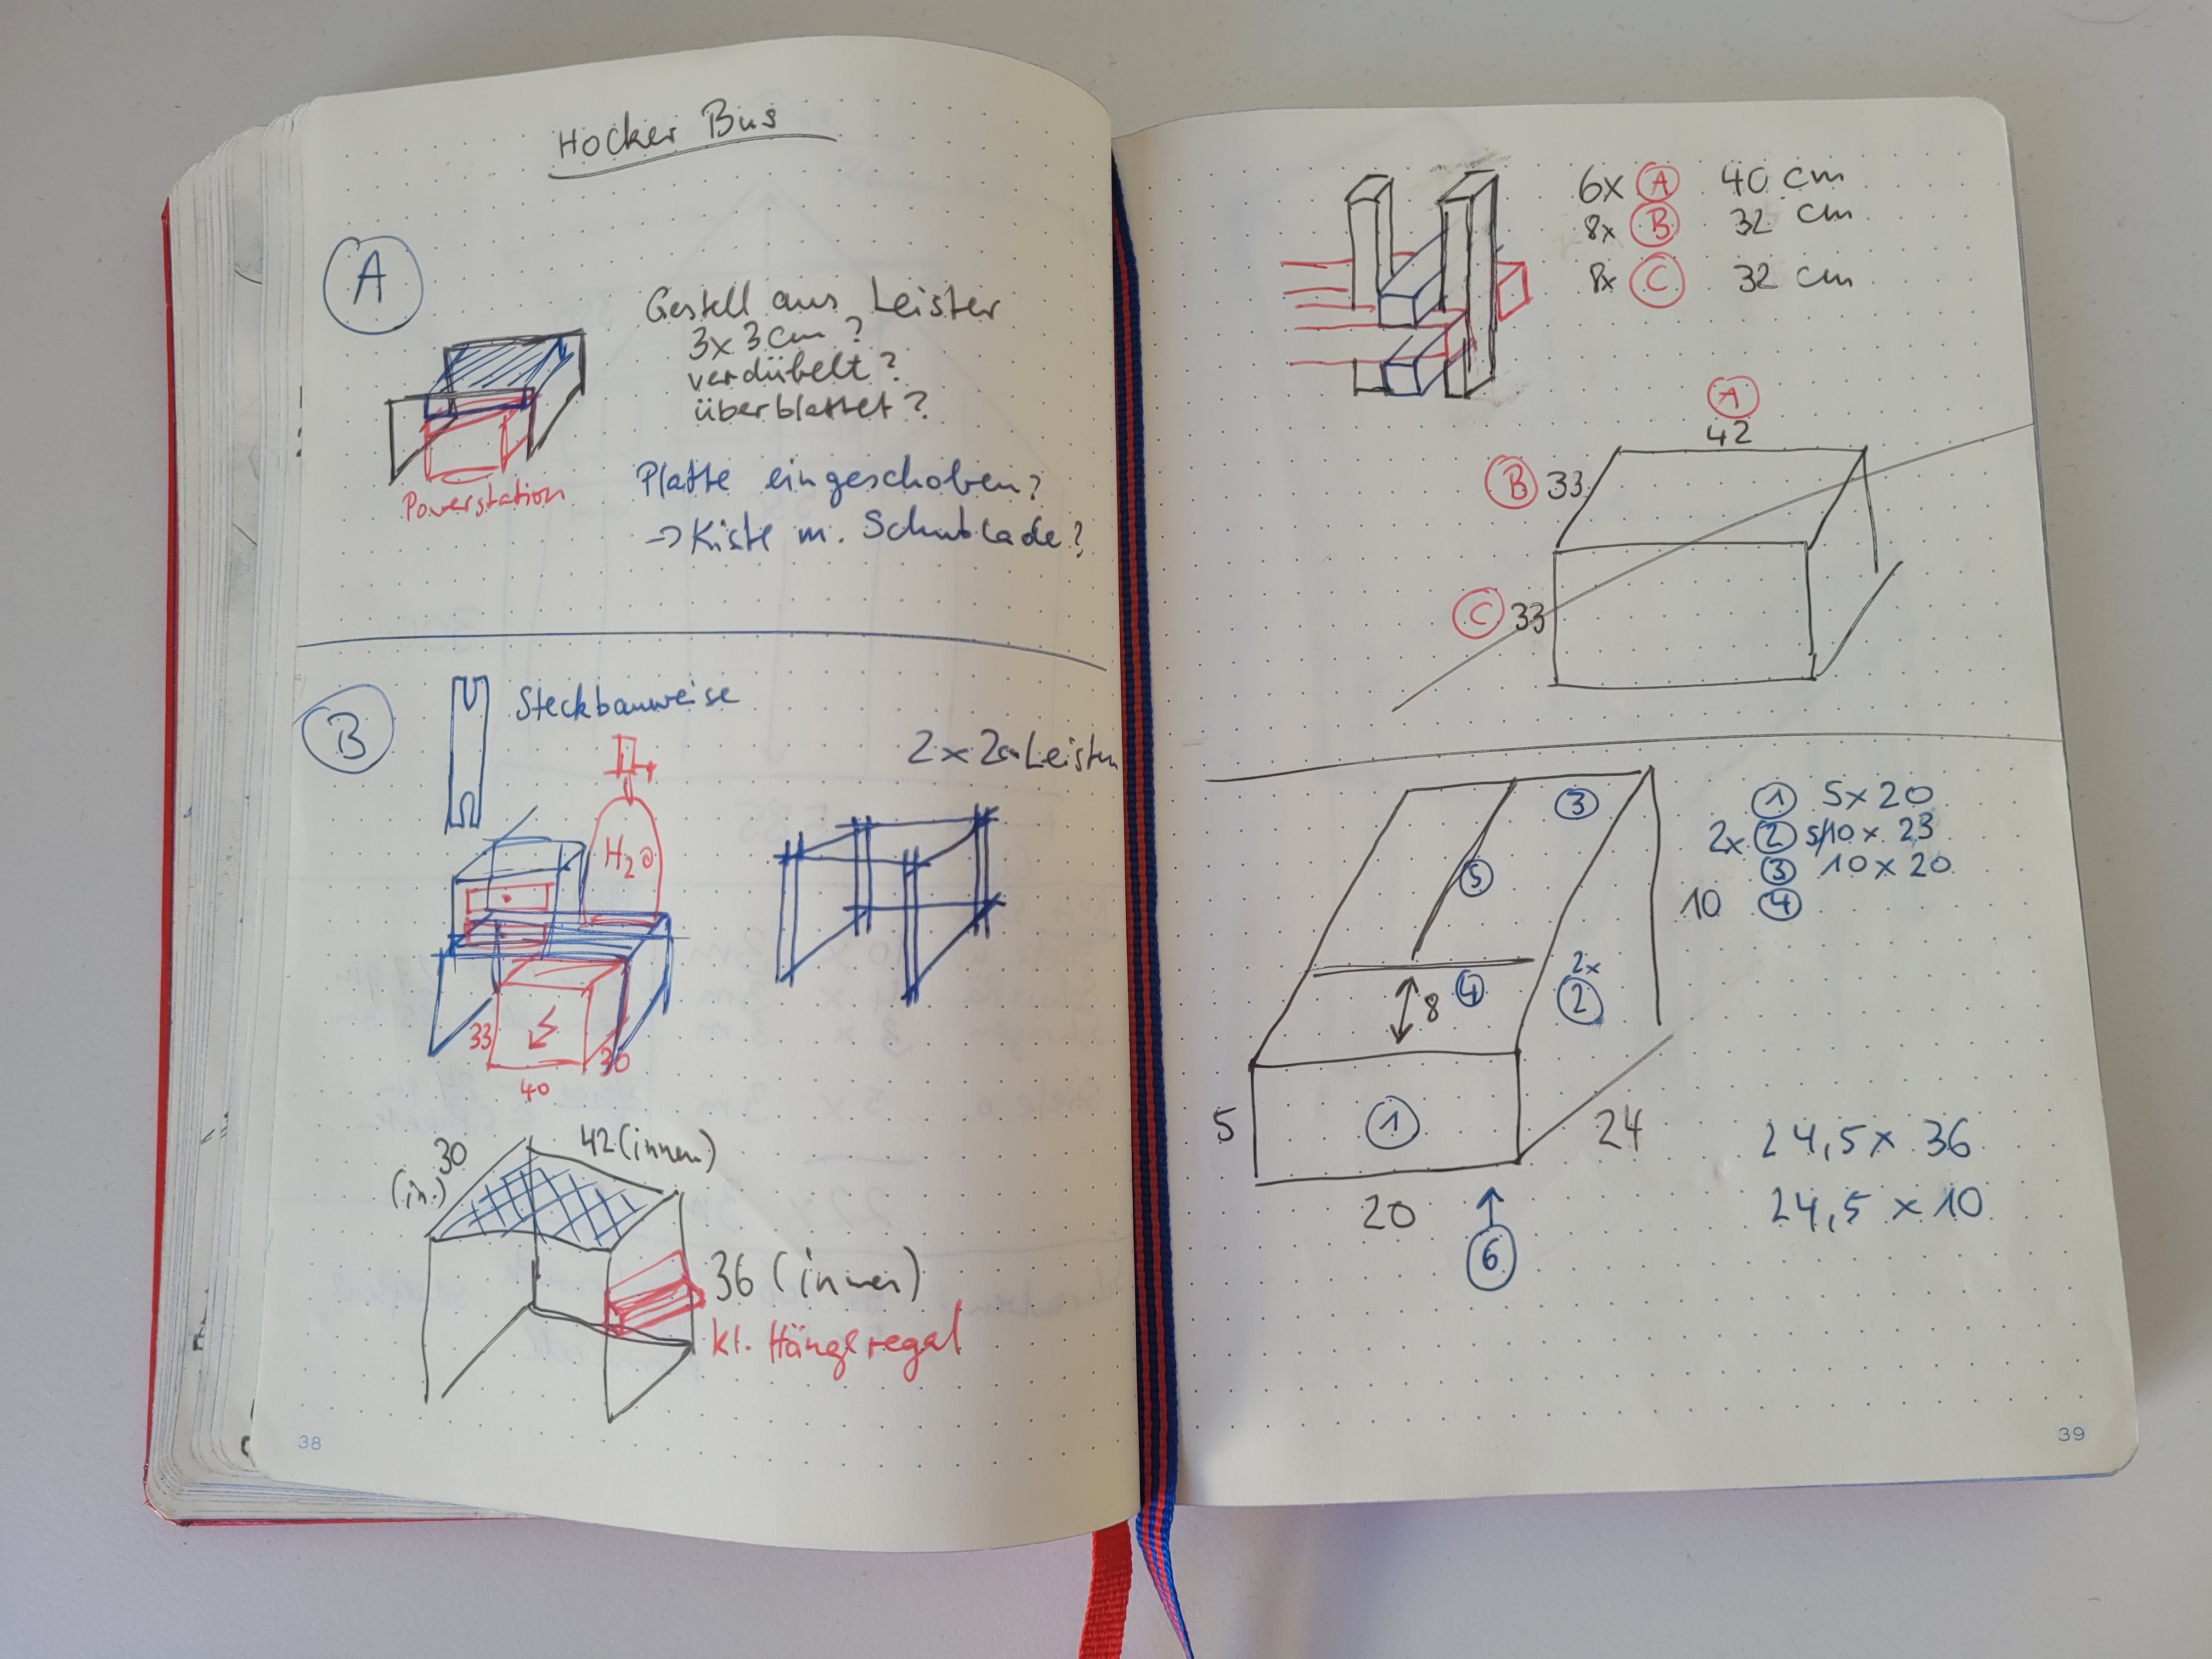 Hocker Bus
A
Gestell aus Leisten
3x3cm?
verdübelt?
überblattet?
Powerstation
Platte eingeschoben?
→ Kiste m. Schublade?
B
Steckbauweise
2x2cm Leisten
H2O
33
30
40
30
(in.)
42 (innen)
36 (innen)
kl. Hängeregal
38
6x A 40 cm
8x B 32 cm
8x C 32 cm
A
42
B 33
C 33
3
5
4
8
2x
2
1
5
20
24
6
1 5x20
2x 2 5/10 x 23
3 10x20
10 4
24,5 x 36
24,5 x 10
39